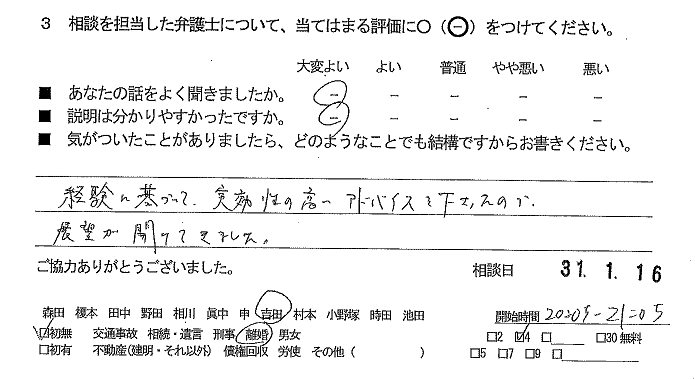 3 相談を担当した弁護士について、当てはまる評価に○（⊖）をつけてください。
大変よい よい 普通 やや悪い 悪い
■ あなたの話をよく聞きましたか。 － － － － －
■ 説明は分かりやすかったですか。 － － － － －
■ 気がついたことがありましたら、どのようなことでも結構ですからお書きください。
経験に基づいて、実効性の高いアドバイスを下さったので、
展望が開けてきました。
ご協力ありがとうございました。 相談日 31. 1. 16
森田 榎本 田中 野田 相川 眞中 申 吉田 村本 小野塚 時田 池田 開始時間
☑初無 交通事故 相続・遺言 刑事 離婚 男女 □2 ☑4 □ □30無料
□初有 不動産(建明・それ以外) 債権回収 労使 その他（ ） □5 □7 □9 □